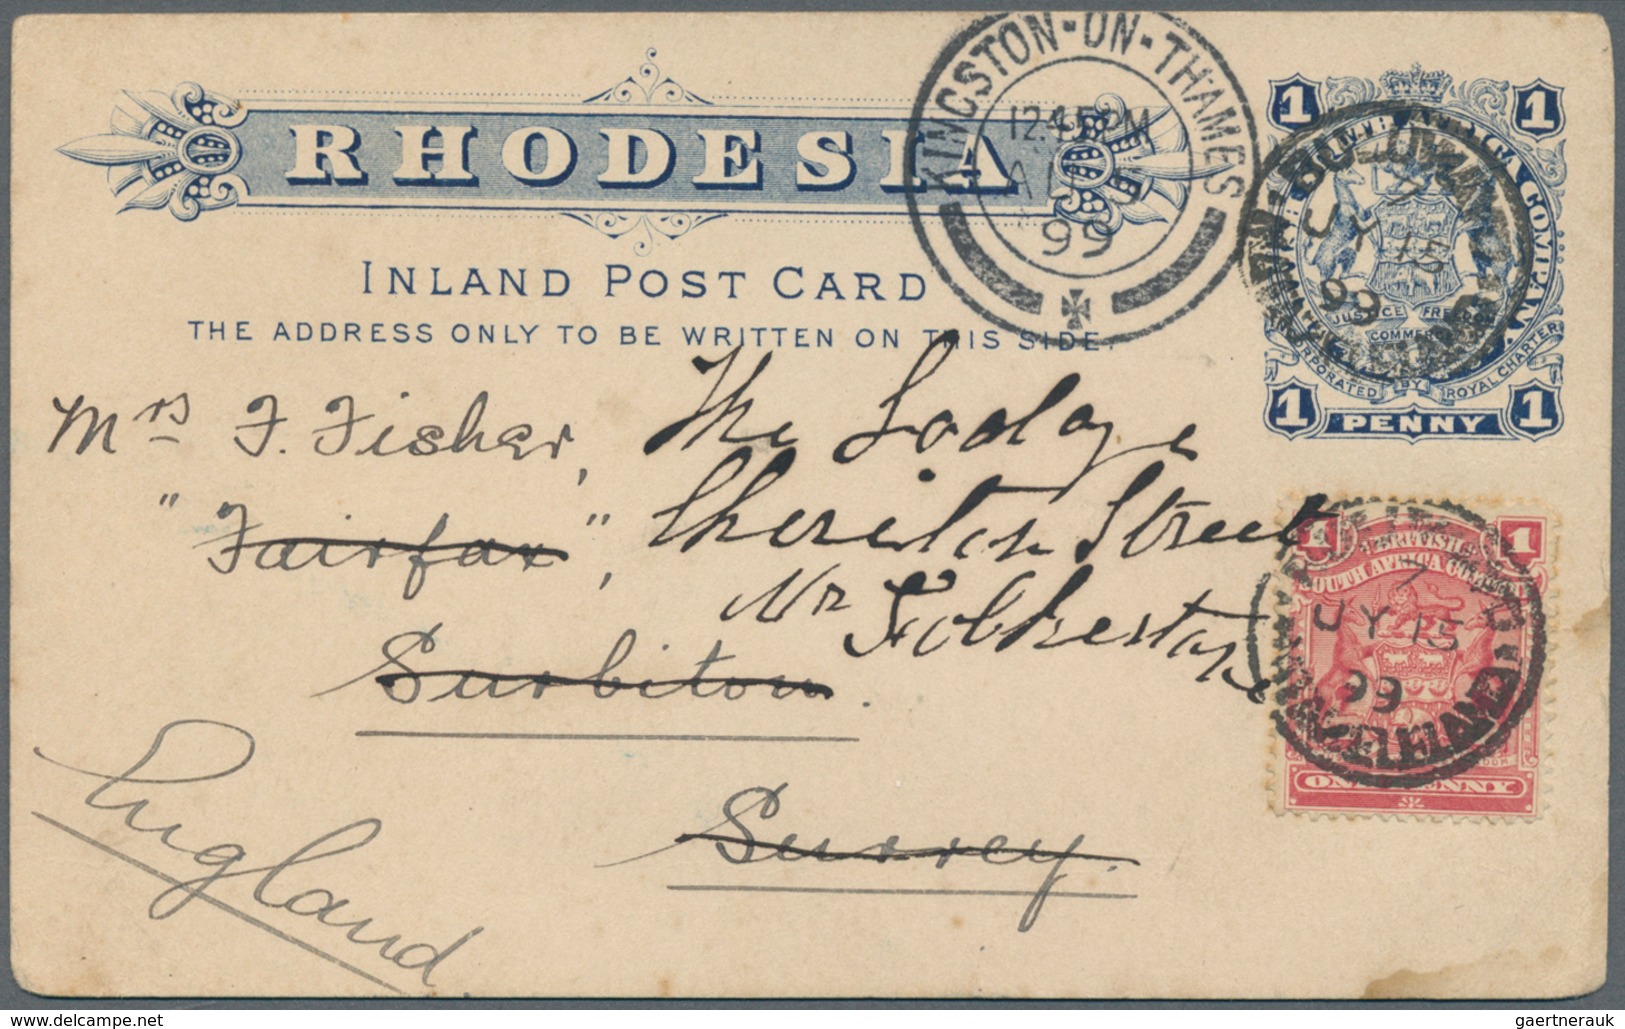 RHODESIA
INLAND POST CARD
THE ADDRESS ONLY TO BE WRITTEN ON THIS SIDE.
KINGSTON-ON-THAMES
12.45PM
AU 5
99
1 1
COMPANY.
JUSTICE FREEDOM
COMMERCE
INCORPORATED BY ROYAL CHARTER
1 PENNY 1
BULUWAYO
7
JY 15
99
Mrs F. Fisher, The Lodge
" Fairfax", Cheriton Street
Nr Folkestone
Surbiton
Surrey.
England
1 1
BRITISH
SOUTH AFRICA COMPANY
ONE PENNY
7
JY 15
99
delcampe.net
gaertnerauk